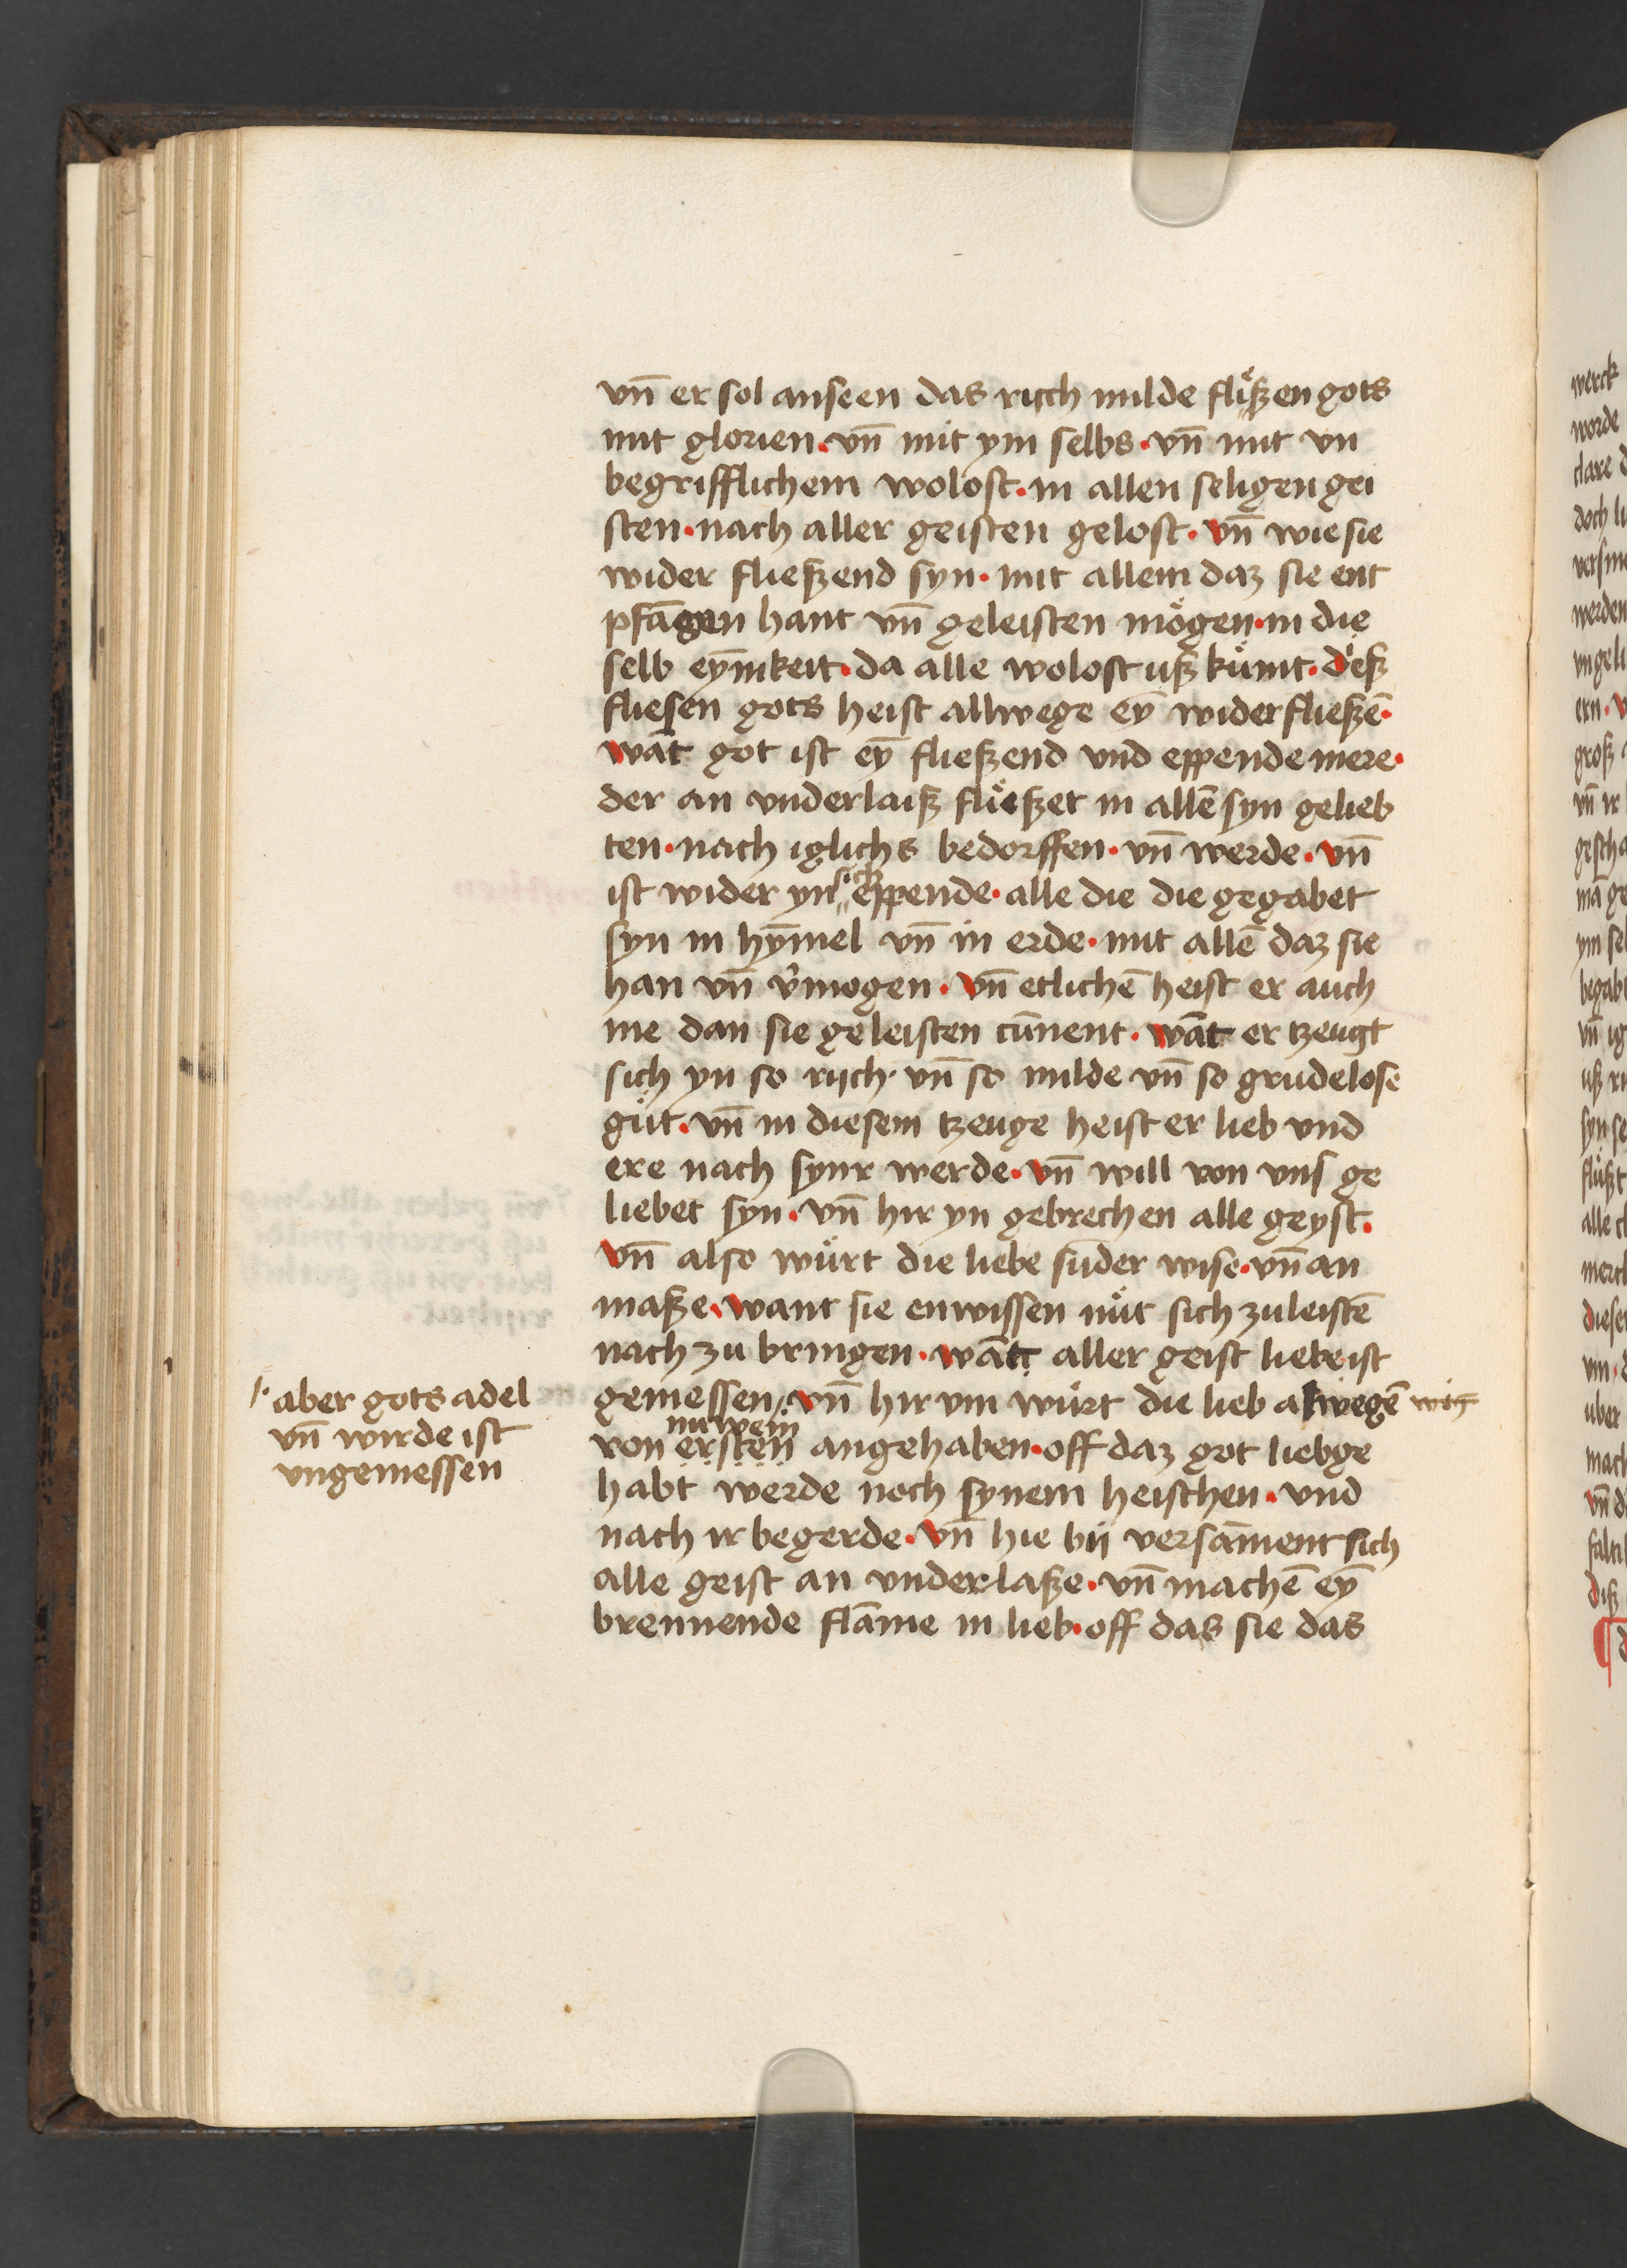 vn̄ er sol anseen das rijch milde flißen gots
mit glorien · vn̄ mit ym selbs · vn̄ mit vn
begrifflichem wolost · in allen seligen gei
sten · nach aller geisten gelost · vn̄ wie sie
wider fließend syn · mit allem daz sie ent
pfāgen hant vn̄ geleisten mögen · in die
selb eȳnikeit · da alle wolost uß kümt · dieß
fliesen gots heist allwege eȳ widerfließē ·
wāt got ist eȳ fließend vnd eppende mere ·
der an vnderlaiß flüeßet in allē syn gelieb
ten · nach iglichs bedorffen · vn̄ werde · vn̄
ist wider yn eppende · alle die die gegabet
syn in hȳmel vn̄ in erde · mit allē daz sie
han vn̄ v̓mogen · vn̄ etlichē heist er auch
me dan sie geleisten cūnent · wāt er tzeugt
sich yn so rijch · vn̄ so milde vn̄ so grudelose
güt · vn̄ in diesem tzeuge heist er lieb vnd
ere nach synr werde · vn̄ will von vns ge
liebet syn · vn̄ hir yn gebrechen alle geyst ·
vn̄ also würt die liebe sūder wise · vn̄ an
maße · want sie enwissen nüt sich zuleistē
nach zu bringen · wātt aller geist liebe ist
gemessen / vn̄ hir vm würt die lieb alwegē
nuwem
von ersten angehaben · off daz got liebge
habt werde noch synem heischen · vnd
nach ir begerde · vn̄ hie bij versāment sich
alle geist an vnderlaße · vn̄ machē eȳ
brennende flāme in lieb · off das sie das
aber gots adel
vn̄ wirde ist
vngemessen